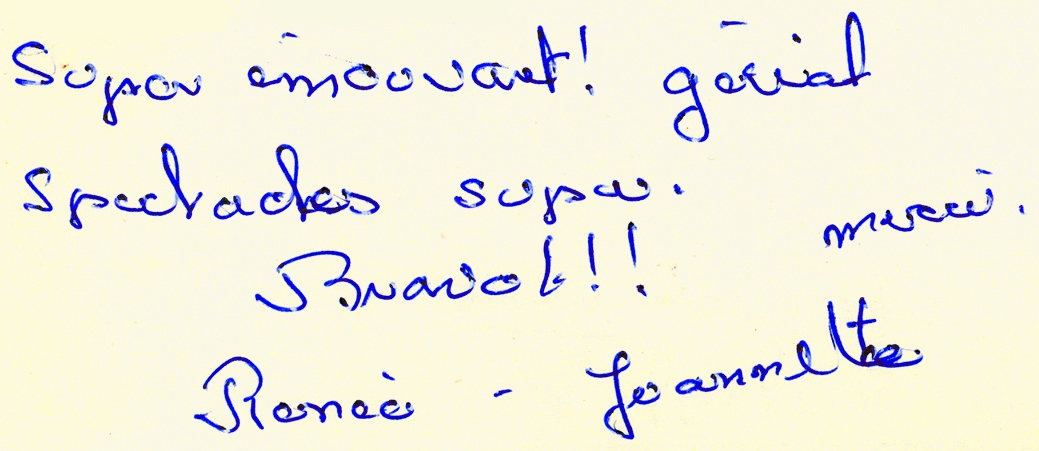 Super émouvant! génial
Spectacles super.
merci.
Bravo!!!
Renée - Jeannette